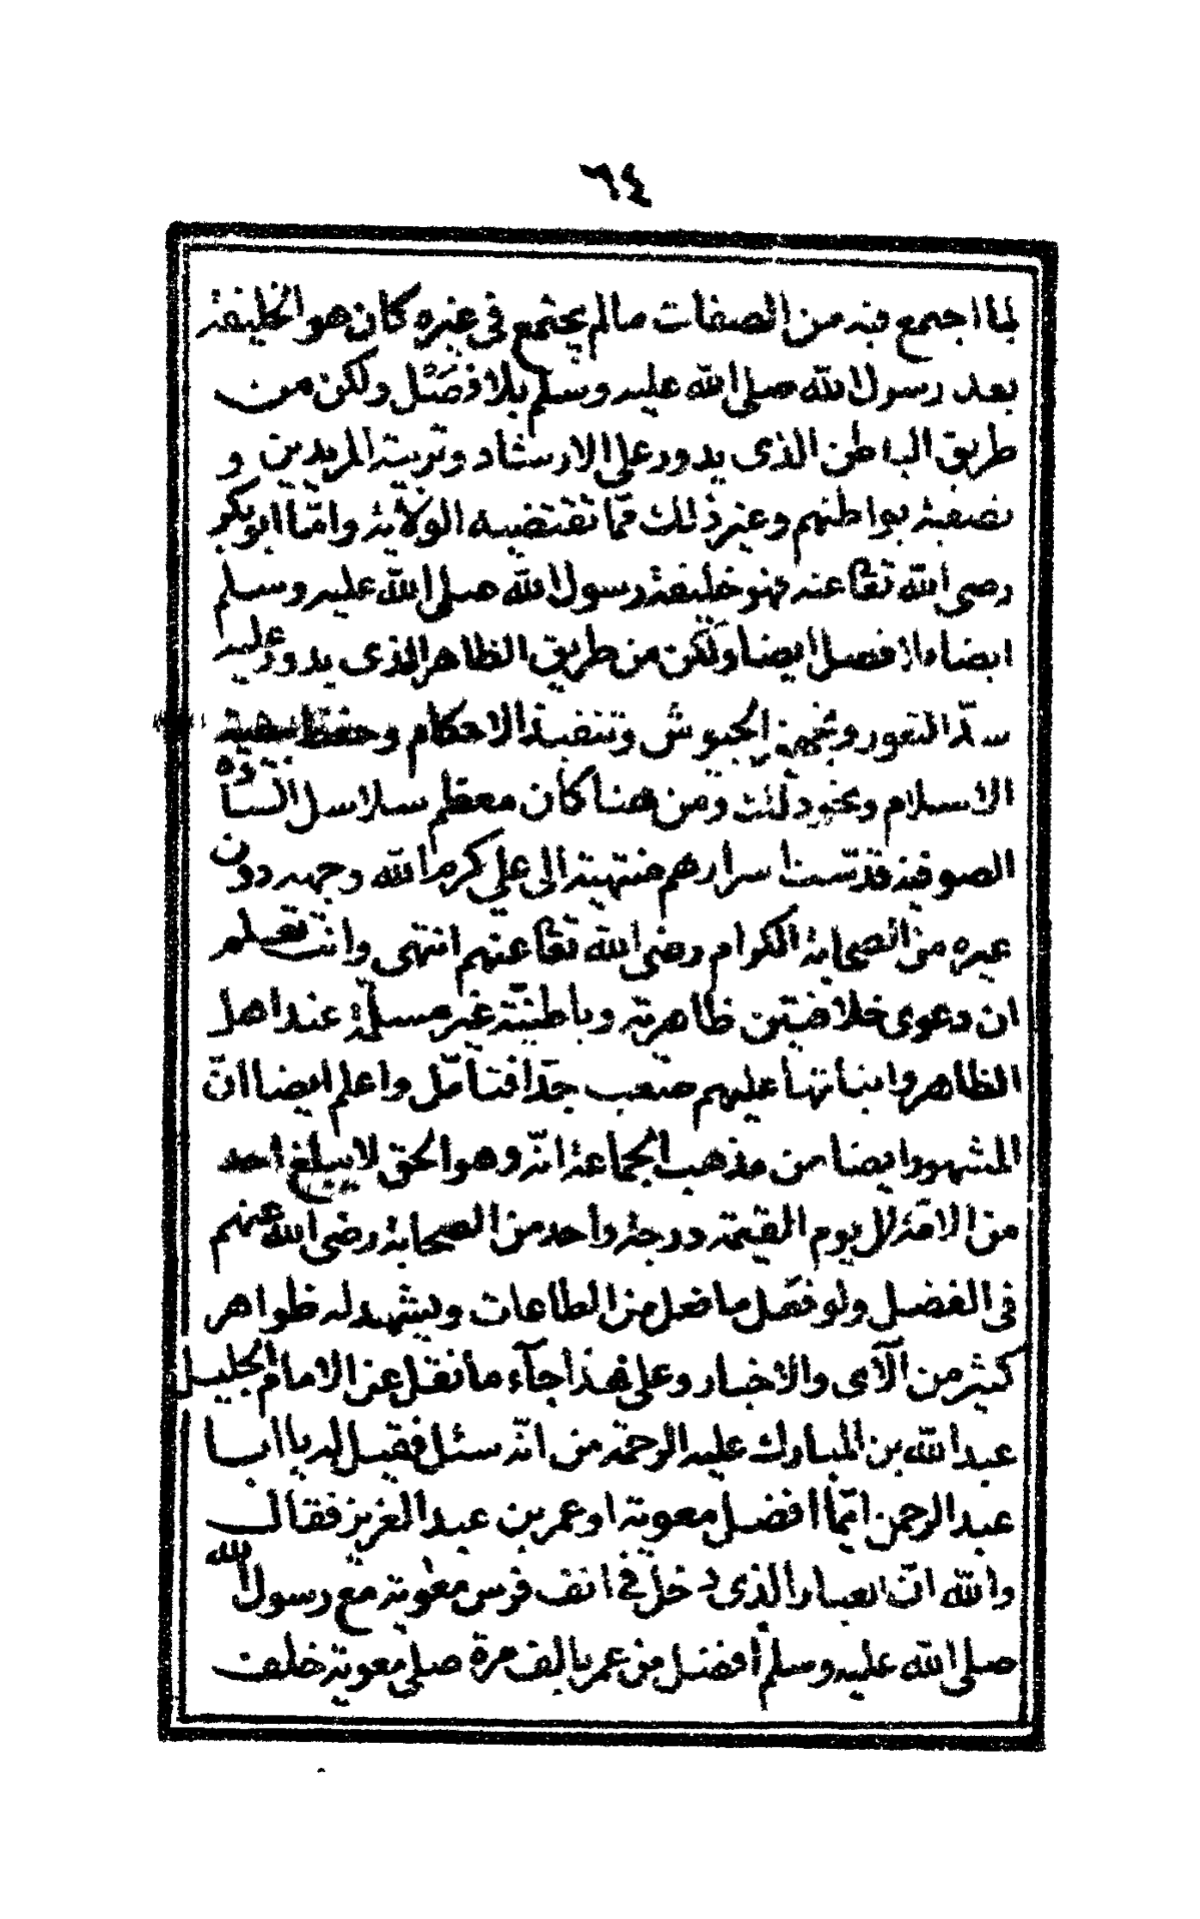 ٦٤
لما اجتمع فيه من الصفات مالم يجتمع في غيره كان هو الخليفة
بعد رسول الله صلى الله عليه وسلم بلا فصل ولكن من
طريق الباطن الذى يدور على الارشاد وتربية المريدين و
تصفية بواطنهم وغير ذلك مما تقتضيه الولاية واما ابو بكر
رضى الله تعا عنه فهو خليفة رسول الله صلى الله عليه وسلم
ايضا بلا فصل ايضا ولكن من طريق الظاهر الذى يدور عليه
سد الثغور وتجهيز الجيوش وتنفيذ الاحكام وحفظ بيضة
الاسلام ونحو ذلك ومن هنا كان معظم سلاسل السادة
الصوفية قدست اسرارهم منتهية الى علي كرم الله وجهه دون
غيره من الصحابة الكرام رضى الله تعا عنهم انتهى وانت تعلم
ان دعوى خلافتين ظاهرية وباطنية غير مسلمة عند اهل
الظاهر واثباتها عليهم صعب جدا فتأمل واعلم ايضا ان
المشهور ايضا من مذهب الجماعة انه وهو الحق لا يبلغ احد
من الامة لل يوم القيمة درجة واحد من الصحابة رضى الله عنهم
فى الفضل ولو فعل ما فعل من الطاعات ويشهد له ظواهر
كثير من الآى والاخبار وعلى هذا جآء ما نقل عن الامام الجليل
عبد الله بن المبارك عليه الرحمة من انه سئل فقيل له يا ابا
عبد الرحمن ايما افضل معوية او عمر بن عبد العزيز فقال
والله ان الغبار الذى دخل في انف فرس معوية مع رسول الله
صلى الله عليه وسلم افضل من عمر بالف مرة صلى معوية خلف